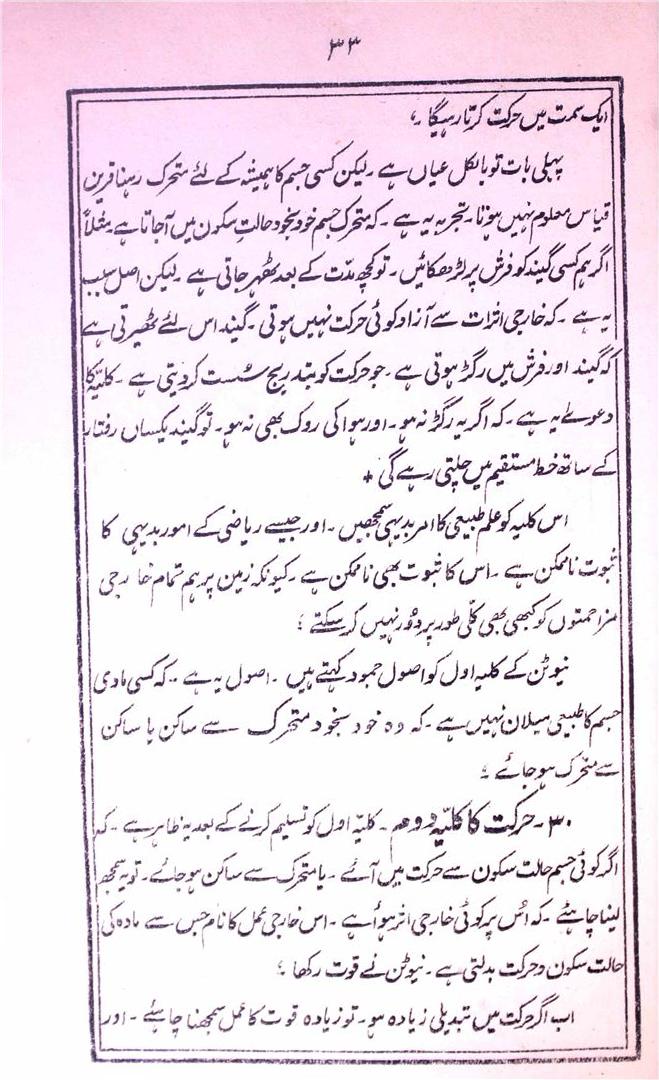 ۳۳
ایک سمت میں حرکت کرتا رہیگا ؛
پہلی بات تو بالکل عیاں ہے ۔ لیکن کسی جسم کا ہمیشہ کے لئے متحرک رہنا قرین
قیاس معلوم نہیں ہوتا ۔ تجربہ یہ ہے ۔ کہ متحرک جسم خود بخود حالتِ سکون میں آجاتا ہے ۔ مثلاً
اگر ہم کسی گیند کو فرش پر لڑھکائیں ۔ تو کچھ مدّت کے بعد ٹھہر جاتی ہے ۔ لیکن اصل سبب
یہ ہے ۔ کہ خارجی اثرات سے آزاد کوئی حرکت نہیں ہوتی ۔ گیند اس لئے ٹھیرتی ہے
کہ گیند اور فرش میں رگڑ ہوتی ہے ۔ جو حرکت کو بتدریج سُست کر دیتی ہے ۔ کلیّہ کا
دعولے یہ ہے ۔ کہ اگر یہ رگڑ نہ ہو ۔ اور ہوا کی روک بھی نہ ہو ۔ تو گیند یکساں رفتار
کے ساتھ خط مستقیم میں چلتی رہے گی +
اس کلیہ کو علم طبیعی کا امر بدیہی سمجھیں ۔ اور جیسے ریاضی کے امور بدیہی کا
ثبوت ناممکن ہے ۔ اس کا ثبوت بھی ناممکن ہے ۔ کیونکہ زمین پر ہم تمام خارجی
مزاحمتوں کو کبھی بھی کلّی طور پر دُور نہیں کر سکتے ؛
نیوٹن کے کلیہ اول کو اصول جمود کہتے ہیں ۔ اصول یہ ہے ۔ کہ کسی مادی
جسم کا طبیعی میلان نہیں ہے ۔ کہ وہ خود بخود متحرک سے ساکن یا ساکن
سے متحرک ہو جائے ؛
۳۰ ۔ حرکت کا کلیّہ دوم ۔ کلیّہ اول کو تسلیم کرنے کے بعد یہ ظاہر ہے ۔ کہ
اگر کوئی جسم حالت سکون سے حرکت میں آئے ۔ یا متحرک سے ساکن ہو جائے ۔ تو یہ سمجھ
لینا چاہئے ۔ کہ اُس پر کوئی خارجی اثر ہوأ ہے ۔ اس خارجی عمل کا نام جس سے مادہ کی
حالت سکون و حرکت بدلتی ہے ۔ نیوٹن نے قوت رکھا ؛
اب اگر حرکت میں تبدیلی زیادہ ہو ۔ تو زیادہ قوت کا عمل سمجھنا چاہئے ۔ اور